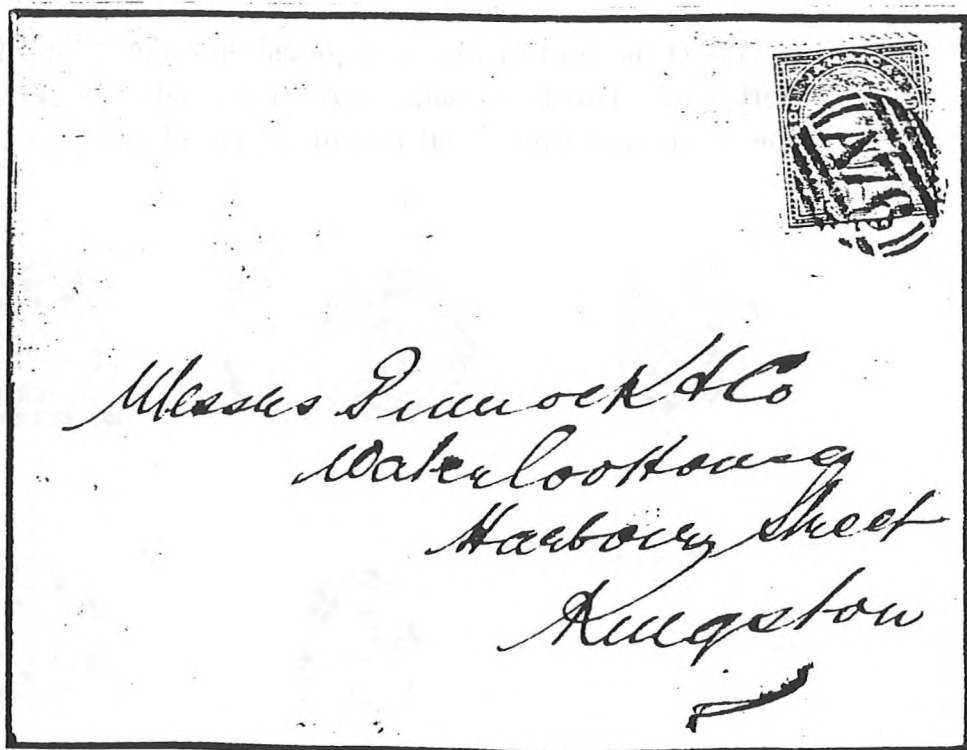 Messrs Dimmock & Co
Waterloo House
Harbour Street
Kingston